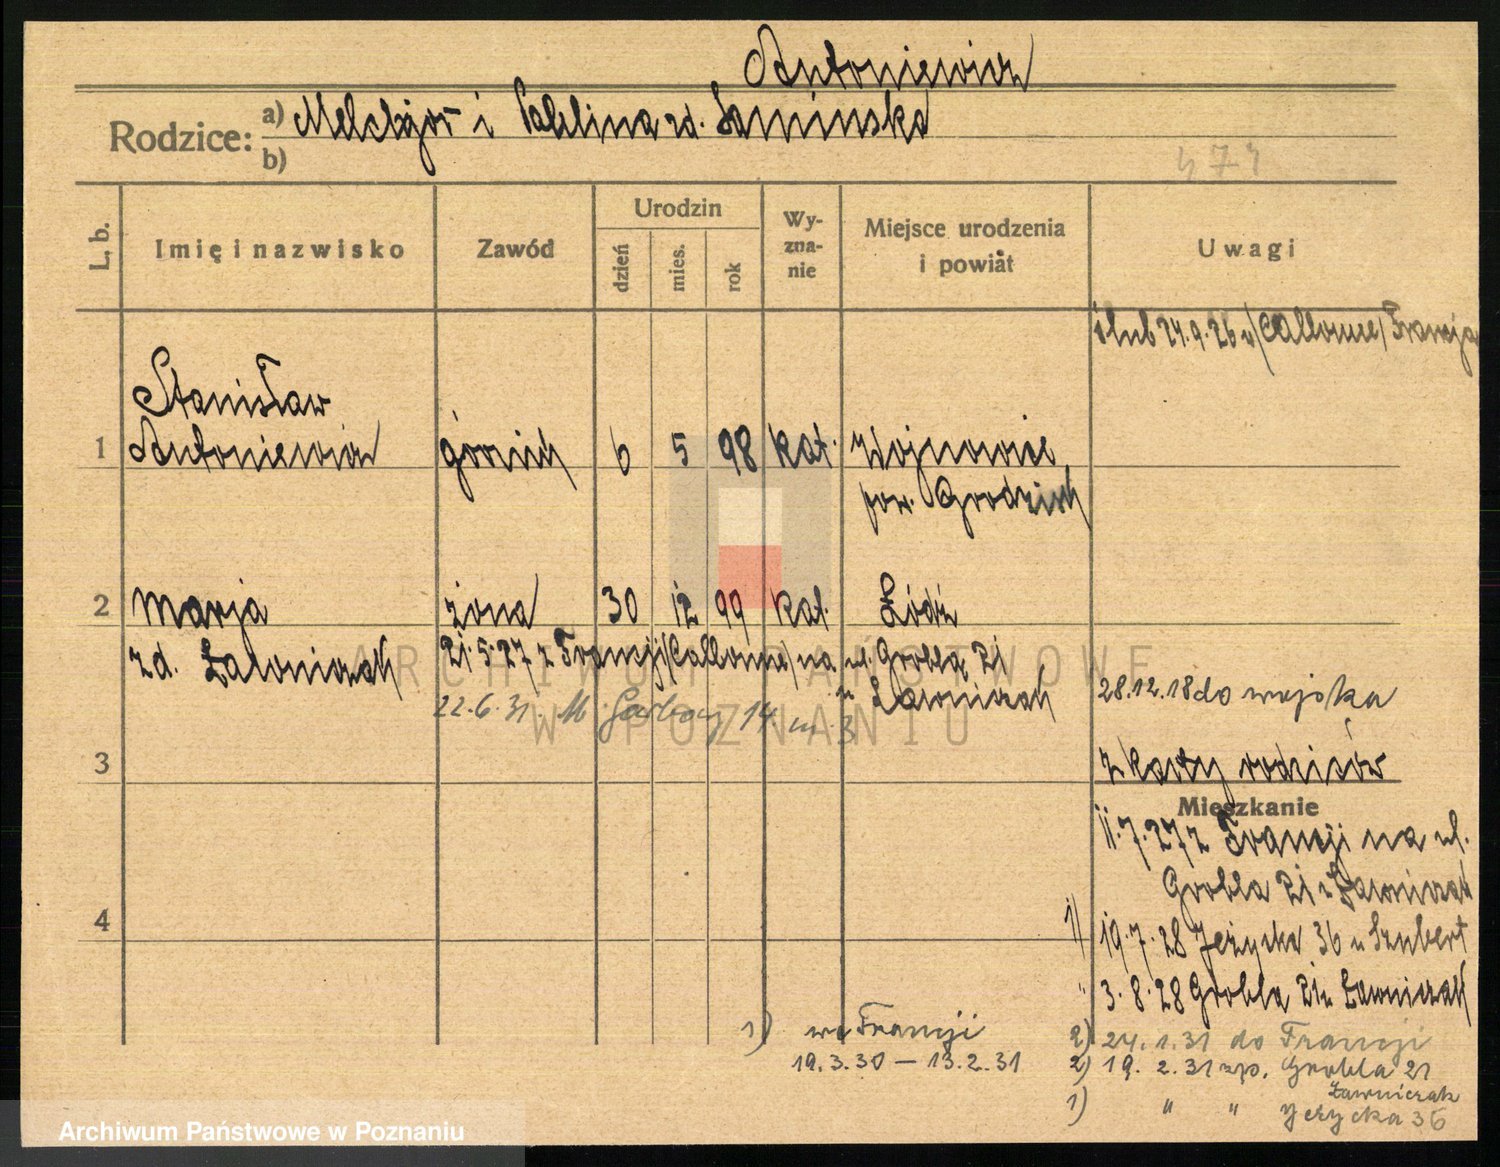 Antoniewicz
Rodzice: a) Melchjor i Paulina zd. Kamińska
b)
L. b.
Imię i nazwisko
Zawód
Urodzin
dzień
mies.
rok
Wy-
zna-
nie
Miejsce urodzenia
i powiat
Uwagi
ślub 24.9.26 w /Callonne/ Francja
Stanisław
1 Antoniewicz górnik 6 5 98 kat. Wojnowice
pow. Grodzisk
2 Marja żona 30 12 99 kat. Łódź
zd. Ławniczak 21.5.27 z Francji /Callonne/ na ul. Grobla 21
u Ławniczak
22.6.31. M Garbary 14. m. 3
28.12.18 do wojska
3 z karty rodziców
Mieszkanie
11.7.27 z Francji na ul.
Grobla 21 u Ławniczak
4
1) 19.7.28 Jeżycka 36 u Szubert
" 3.8.28 Grobla 21 u Ławniczak
1) we Francji
19.3.30 — 13.2.31
2) 24.1.31 do Francji
2) 19.2.31 zp. Grobla 21
Ławniczak
1) " " Jeżycka 36
ARCHIWUM PAŃSTWOWE
W POZNANIU
Archiwum Państwowe w Poznaniu